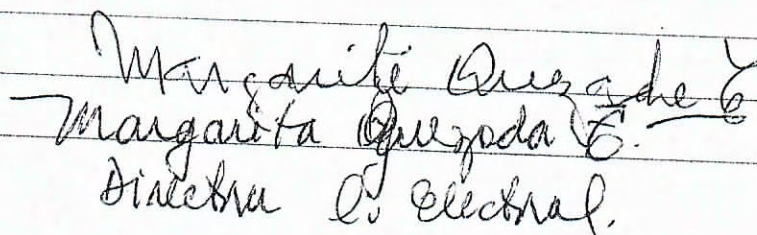 Margarita Quezada E
Margarita Quezada E.
Directora C. Electoral.